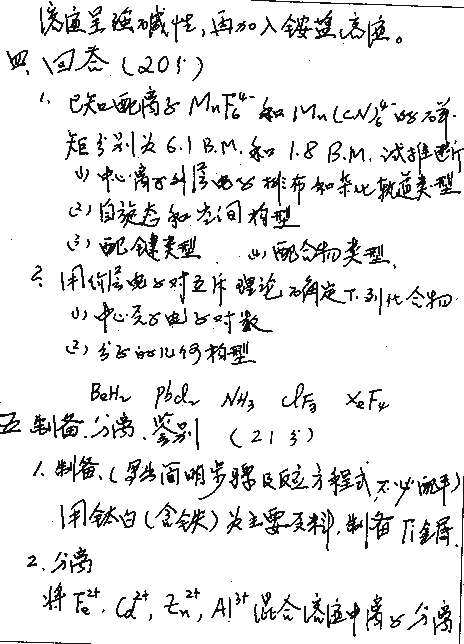 溶液呈强碱性,再加入铵盐溶液。
四、回答(20分)
1. 已知配离子 MnF₆⁴⁻ 和 Mn(CN)₆⁴⁻ 的磁
矩分别为 6.1 B.M. 和 1.8 B.M. 试推断
(1) 中心离子外层电子排布和杂化轨道类型
(2) 自旋态和空间构型
(3) 配键类型 (4) 配合物类型。
2. 用价层电子对互斥理论确定下列化合物
(1) 中心原子电子对数
(2) 分子的几何构型
BeH₂ PbCl₂ NH₃ ClF₃ XeF₄
五、制备、分离、鉴别 (21分)
1. 制备、(写出简明步骤及反应方程式,不必配平)
用钛白(含铁)为主要原料,制备Ti金属.
2. 分离
将 Fe²⁺, Cd²⁺, Zn²⁺, Al³⁺ 混合溶液中离子分离